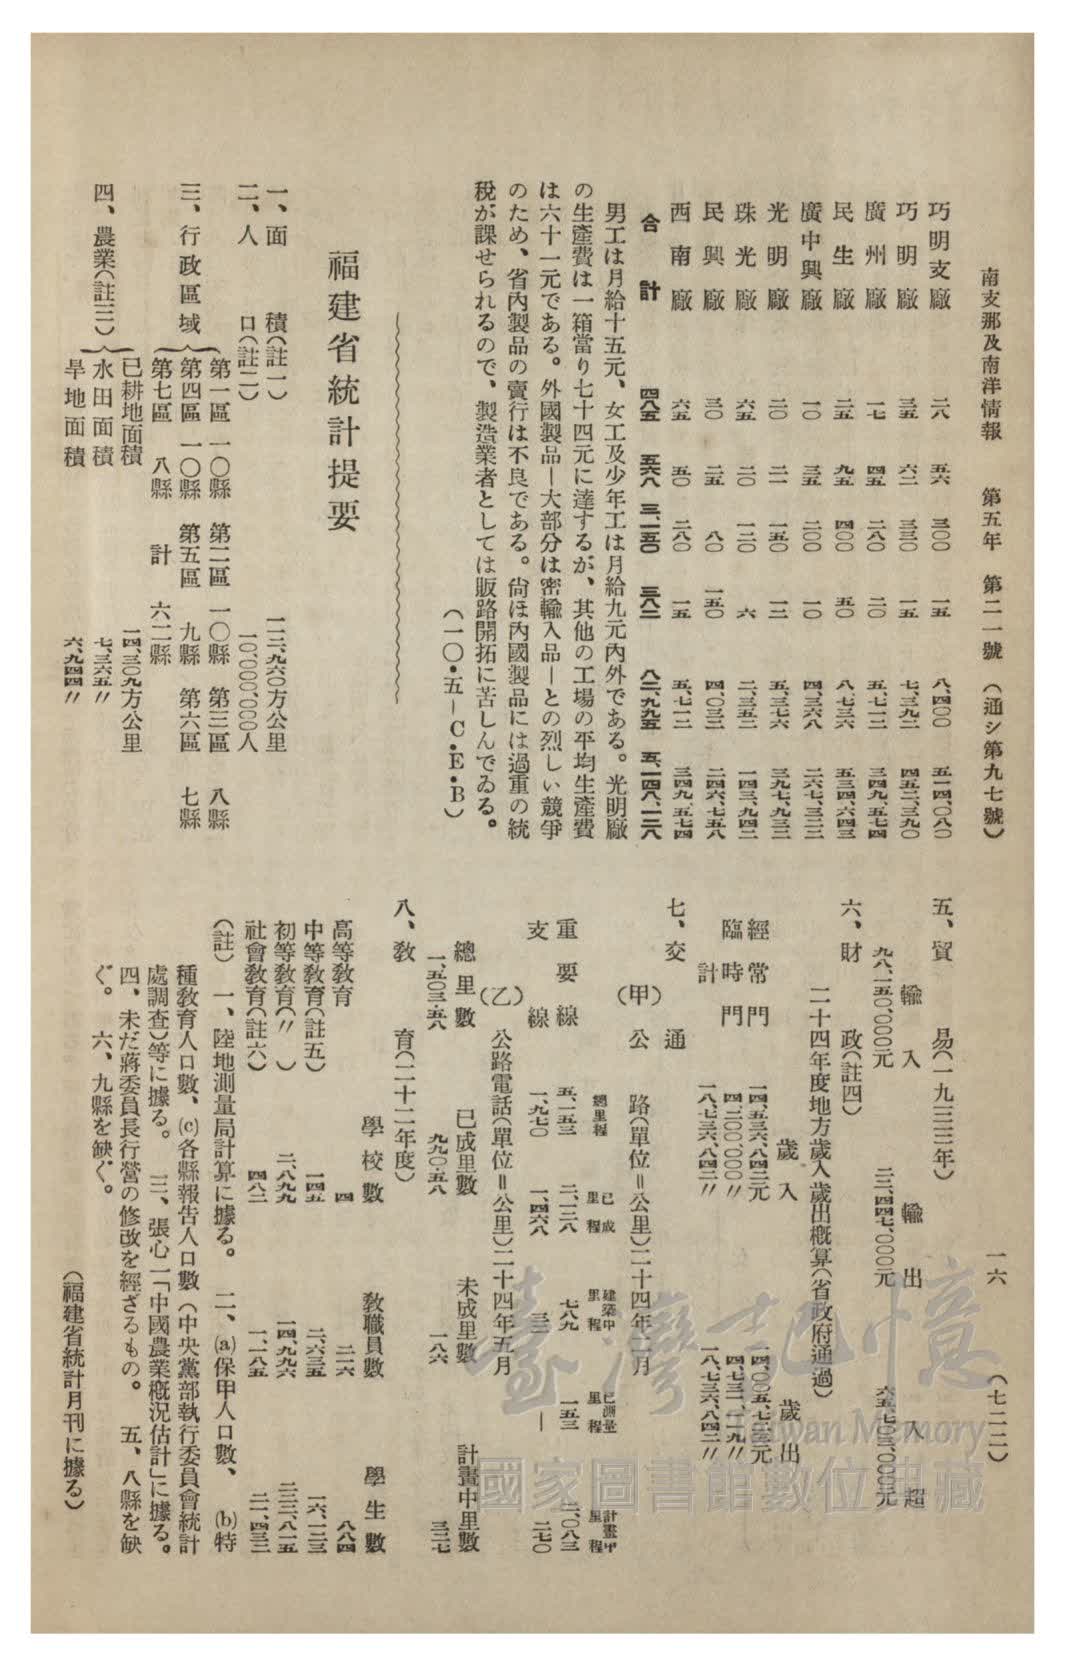 南支那及南洋情報　第五年　第二一號　（通シ第九七號）
一六　（七二二）
巧明支廠　二八　五六　三〇〇　一五　八、四〇〇　五一四、〇八〇
巧明廠　三五　六二　三三〇　一五　七、三九二　四五二、三九〇
廣州廠　一七　四五　二八〇　二〇　五、七一二　三四九、五七四
民生廠　二五　九五　四〇〇　五〇　八、七三六　五三四、六四三
廣中興廠　一〇　三五　二〇〇　一〇　四、三六八　二六七、三二二
光明廠　二〇　二一　一五〇　一二　五、三七六　三九七、九三二
珠光廠　六五　二〇　一二〇　六　二、三五二　一四三、九四二
民興廠　三〇　二五　八〇　一五〇　四、〇三二　二四六、七五八
西南廠　六五　五〇　二八〇　一五　五、七一二　三四九、五七四
合計　四八五　五六八　三、一五〇　三八二　八二、九九五　五、一四八、一二八
男工は月給十五元、女工及少年工は月給九元內外である。光明廠
の生產費は一箱當り七十四元に達するが、其他の工場の平均生產費
は六十一元である。外國製品―大部分は密輸入品―との烈しい競爭
のため、省內製品の賣行は不良である。尙ほ內國製品には過重の統
稅が課せられるので、製造業者としては販路開拓に苦しんでゐる。
（一〇・五－C・E・B）
福建省統計提要
一、面積（註一）　一二二、九六〇方公里
二、人口（註二）　一〇、〇〇〇、〇〇〇人
三、行政區域
第一區　一〇縣　第二區　一〇縣　第三區　八縣
第四區　一〇縣　第五區　九縣　第六區　七縣
第七區　八縣　計　六二縣
四、農業（註三）
已耕地面積　一四、三〇九方公里
水田面積　七、三六五〃
旱地面積　六、九四四〃
五、貿易（一九三三年）
輸入　輸出　入超
九八、一五〇、〇〇〇元　三二、四四七、〇〇〇元　六五、七〇三、〇〇〇元
六、財政（註四）
二十四年度地方歲入歲出槪算（省政府通過）
歲入　歲出
經常門　一四、五三六、八四二元　一四、〇〇五、七二三元
臨時門　四、二〇〇、〇〇〇〃　四、七三一、一一九〃
計　一八、七三六、八四二〃　一八、七三六、八四二〃
七、交通
（甲）公路（單位＝公里）二十四年二月
總里程　已成里程　建築中里程　已測量里程　計畫中里程
重要線　五、一五三　二、一三八　七八九　一五三　二、〇八三
支線　一、九七〇　一、四六八　三二　―　二七〇
（乙）公路電話（單位＝公里）二十四年五月
總里數　已成里數　未成里數　計畫中里數
一、五〇三・五八　九九〇・五八　一八六　三二七
八、敎育（二十二年度）
學校數　敎職員數　學生數
高等敎育　四　二二六　八八四
中等敎育（註五）　一四五　二、六三五　一六、一二三
初等敎育（〃）　二、八九九　一四、九九六　二三三、八一五
社會敎育（註六）　四八二　一、一八五　二一、四三二
（註）　一、陸地測量局計算に據る。　二、(a)保甲人口數、(b)特
種敎育人口數、(c)各縣報告人口數（中央黨部執行委員會統計
處調查）等に據る。　三、張心一「中國農業槪況估計」に據る。
四、未だ蔣委員長行營の修改を經ざるもの。　五、八縣を缺
ぐ。　六、九縣を缺ぐ。
（福建省統計月刊に據る）
臺灣記憶
Taiwan Memory
國家圖書館數位典藏